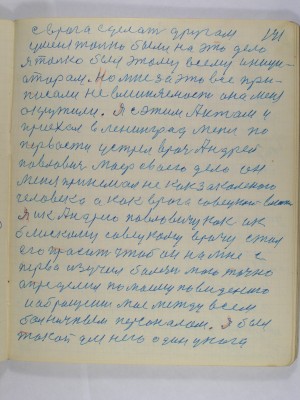 141
с врага сделат другом
умел точно были на это дело
я только был этому всему иници-
атарам. Но мне за это все при-
писали не вменяемость она меня
окружили. Я с этим Актам и
приехал в Ленинград меня по
первости устрел врач Андрей
павлович маер своего дело он
меня принемал не как законого
человека а как врага совецкой власти
Я ик Андрею павловичу как ик
близкому совецкому врачу стал
его прасит чтоб он на мне с
перва изучил болезн мою точно
определил по моему поведению
и обращении мае между всем
болничным персоналом. Я был
такой для него один